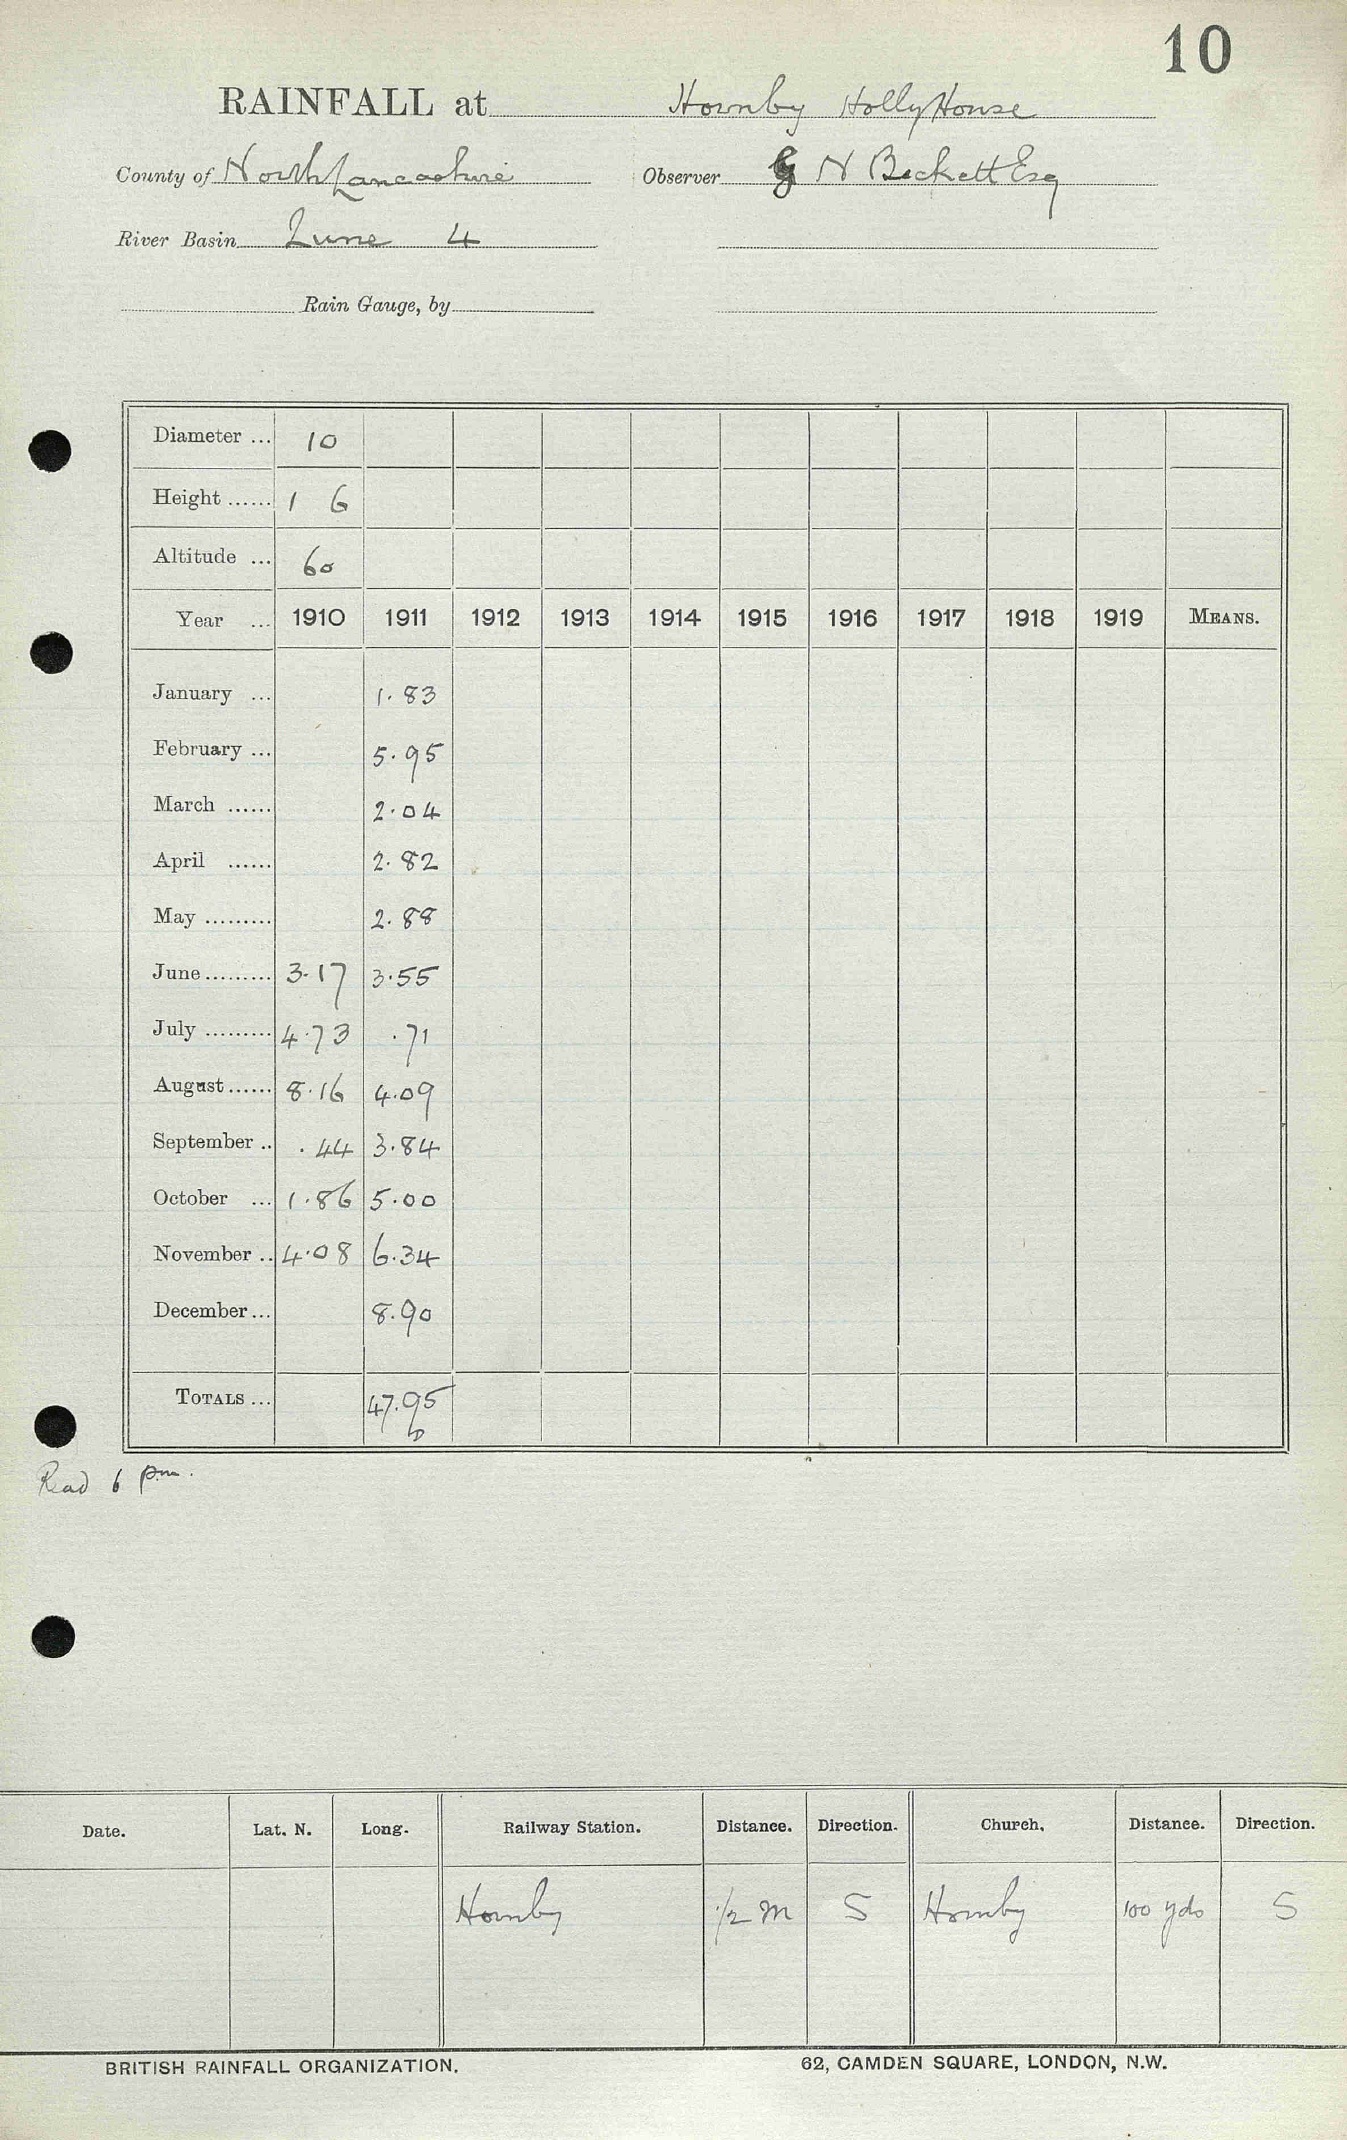 10
RAINFALL at Hornby Holly House
County of North Lancashire Observer G N Beckett Esq
River Basin Lune 4
Rain Gauge, by
Diameter ... 10
Height ...... 1 6
Altitude ... 60
Year ... 1910 1911 1912 1913 1914 1915 1916 1917 1918 1919 MEANS.
January ... 1.83
February ... 5.95
March ...... 2.04
April ...... 2.82
May ......... 2.88
June ......... 3.17 3.55
July ......... 4.73 .71
August ...... 8.16 4.09
September .. .44 3.84
October ... 1.86 5.00
November .. 4.08 6.34
December ... 8.90
TOTALS ... 47.95
Read 6 pm.
Date. Lat. N. Long. Railway Station. Distance. Direction. Church. Distance. Direction.
Hornby 1/2 M S Hornby 100 yds S
BRITISH RAINFALL ORGANIZATION. 62, CAMDEN SQUARE, LONDON, N.W.